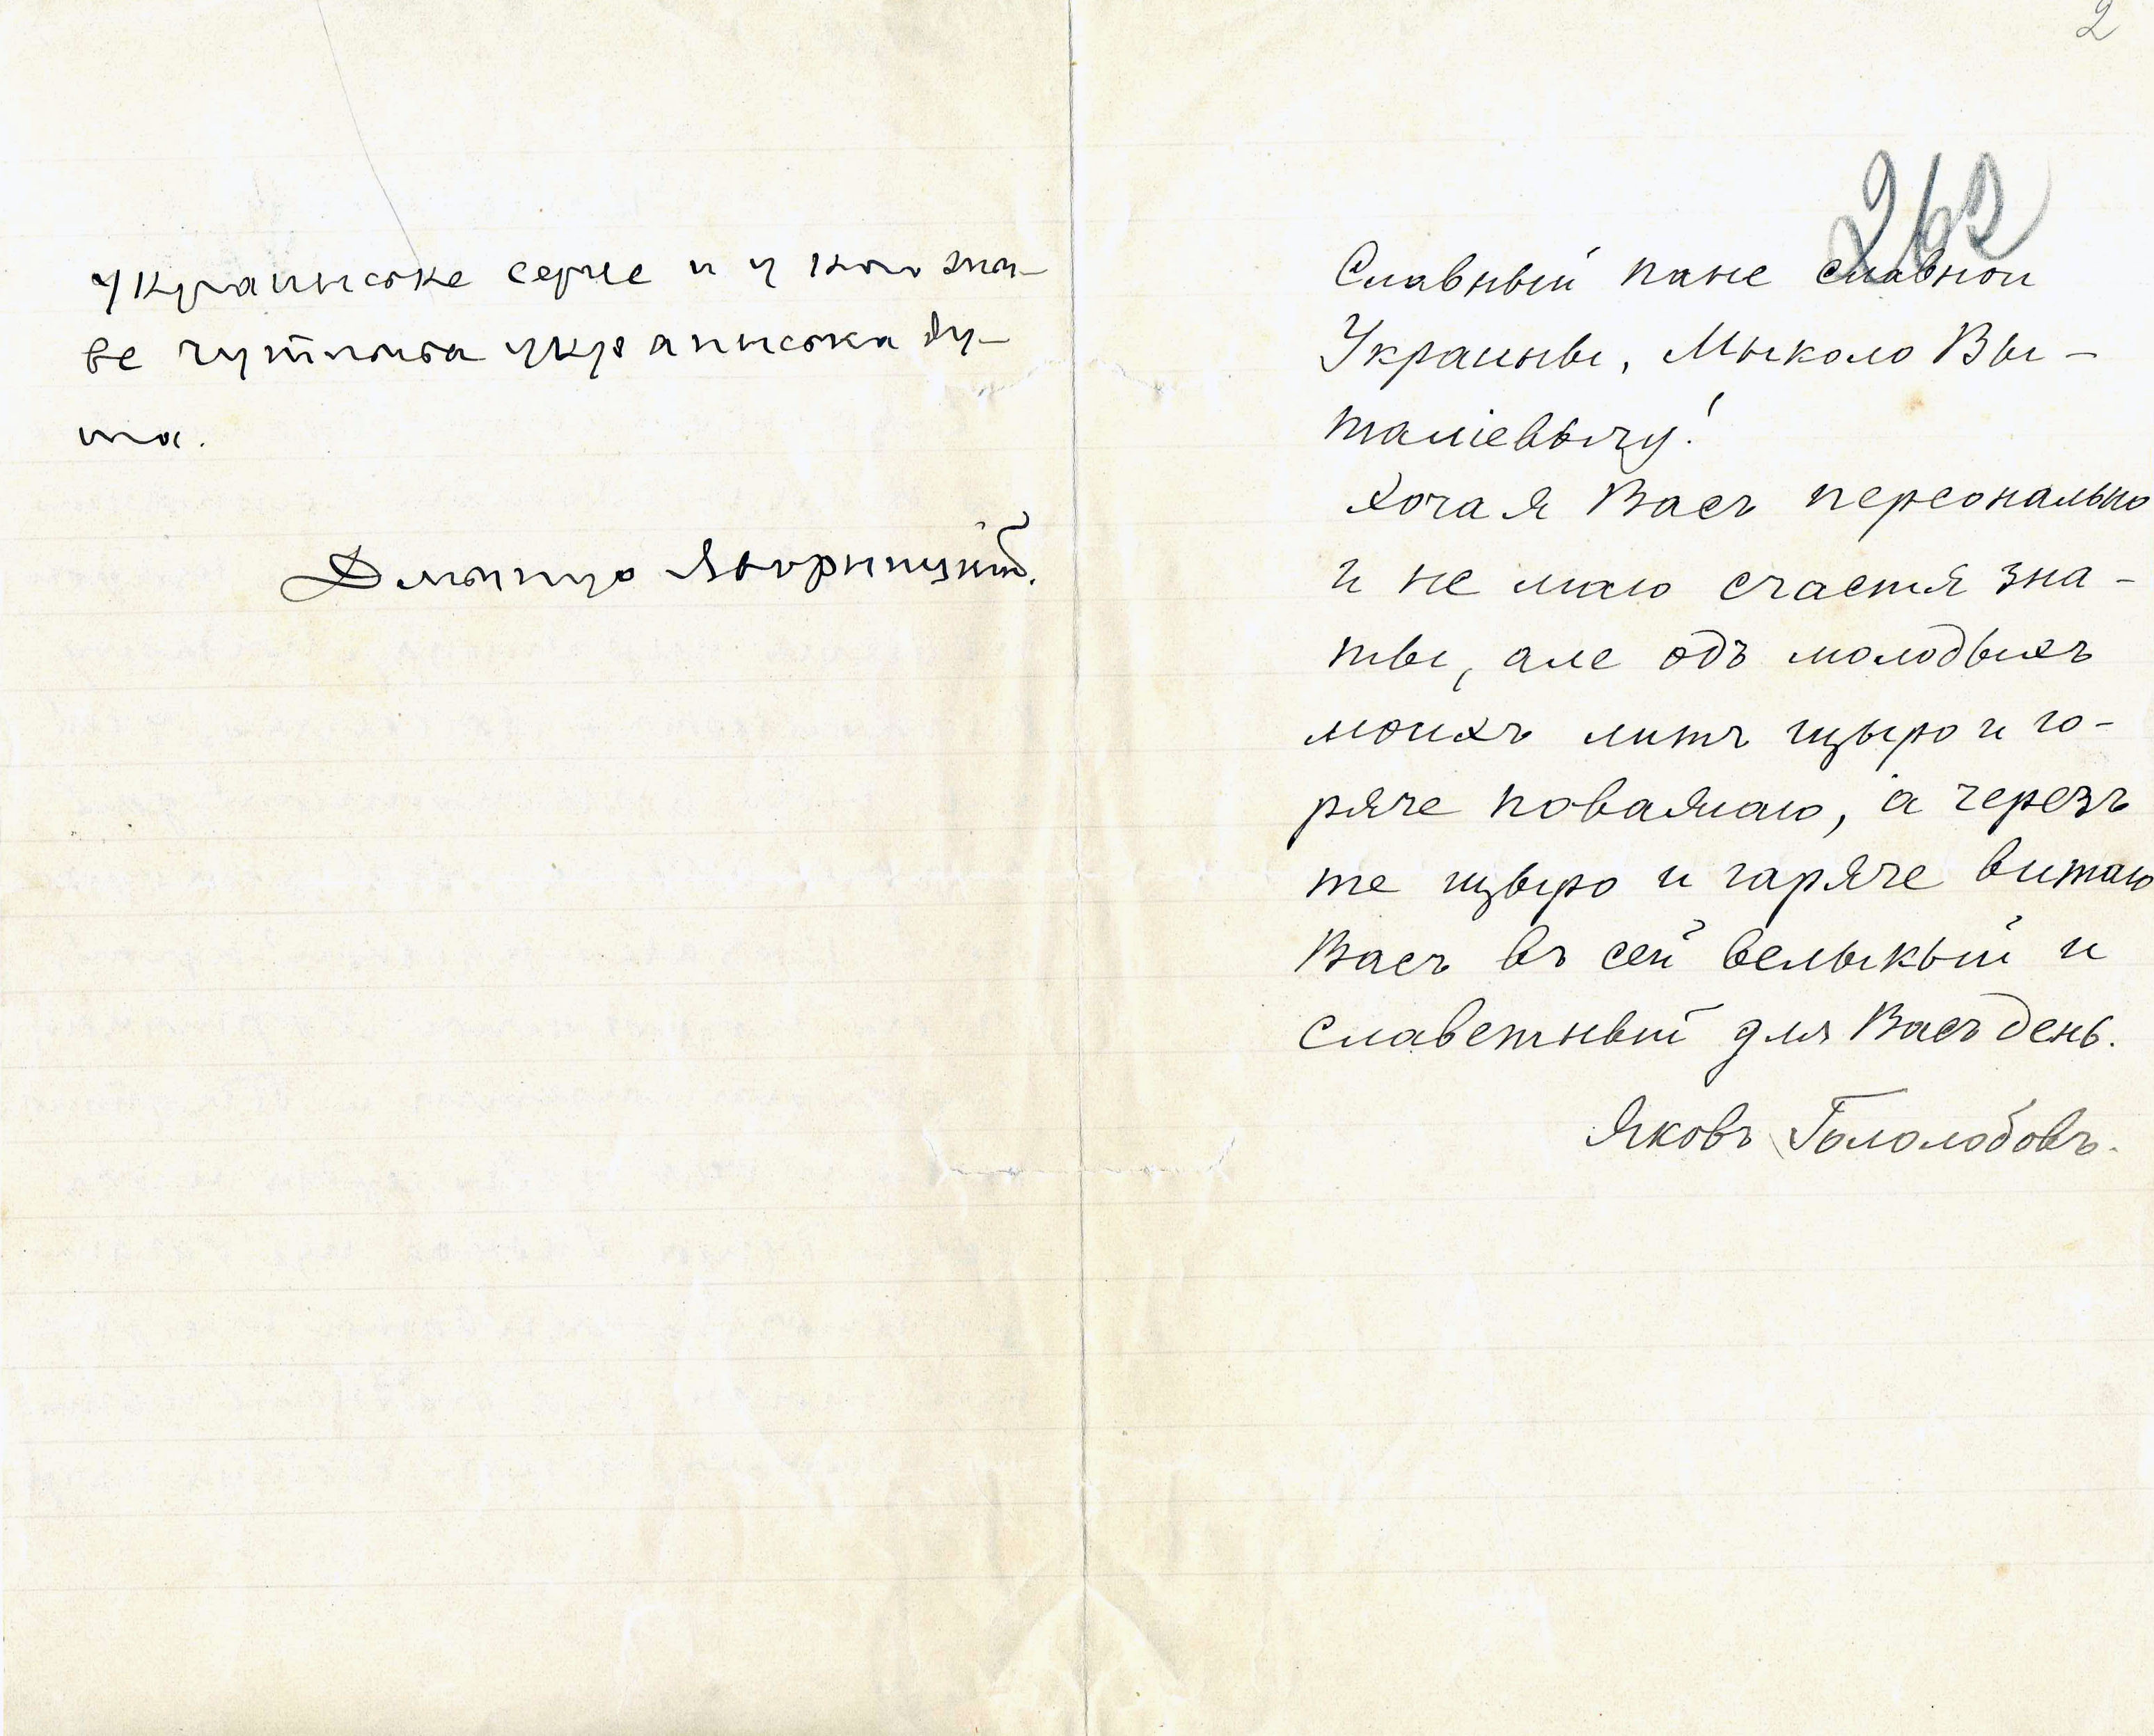 украинське серце и у кого жы-
ве чутлыва украинська ду-
ша.
Дмытро Яворныцкий.
2
262
Славный пане славнои
Украины, Мыколо Вы-
таліевычу!
Хоча я Васъ персонально
и не маю счастя зна-
ты, але одъ молодыхъ
моихъ литъ щыро и го-
ряче поважаю, а черезъ
те щыро и гаряче витаю
Васъ въ сей велыкый и
славетный для Васъ день.
Яковъ Гололобовъ.